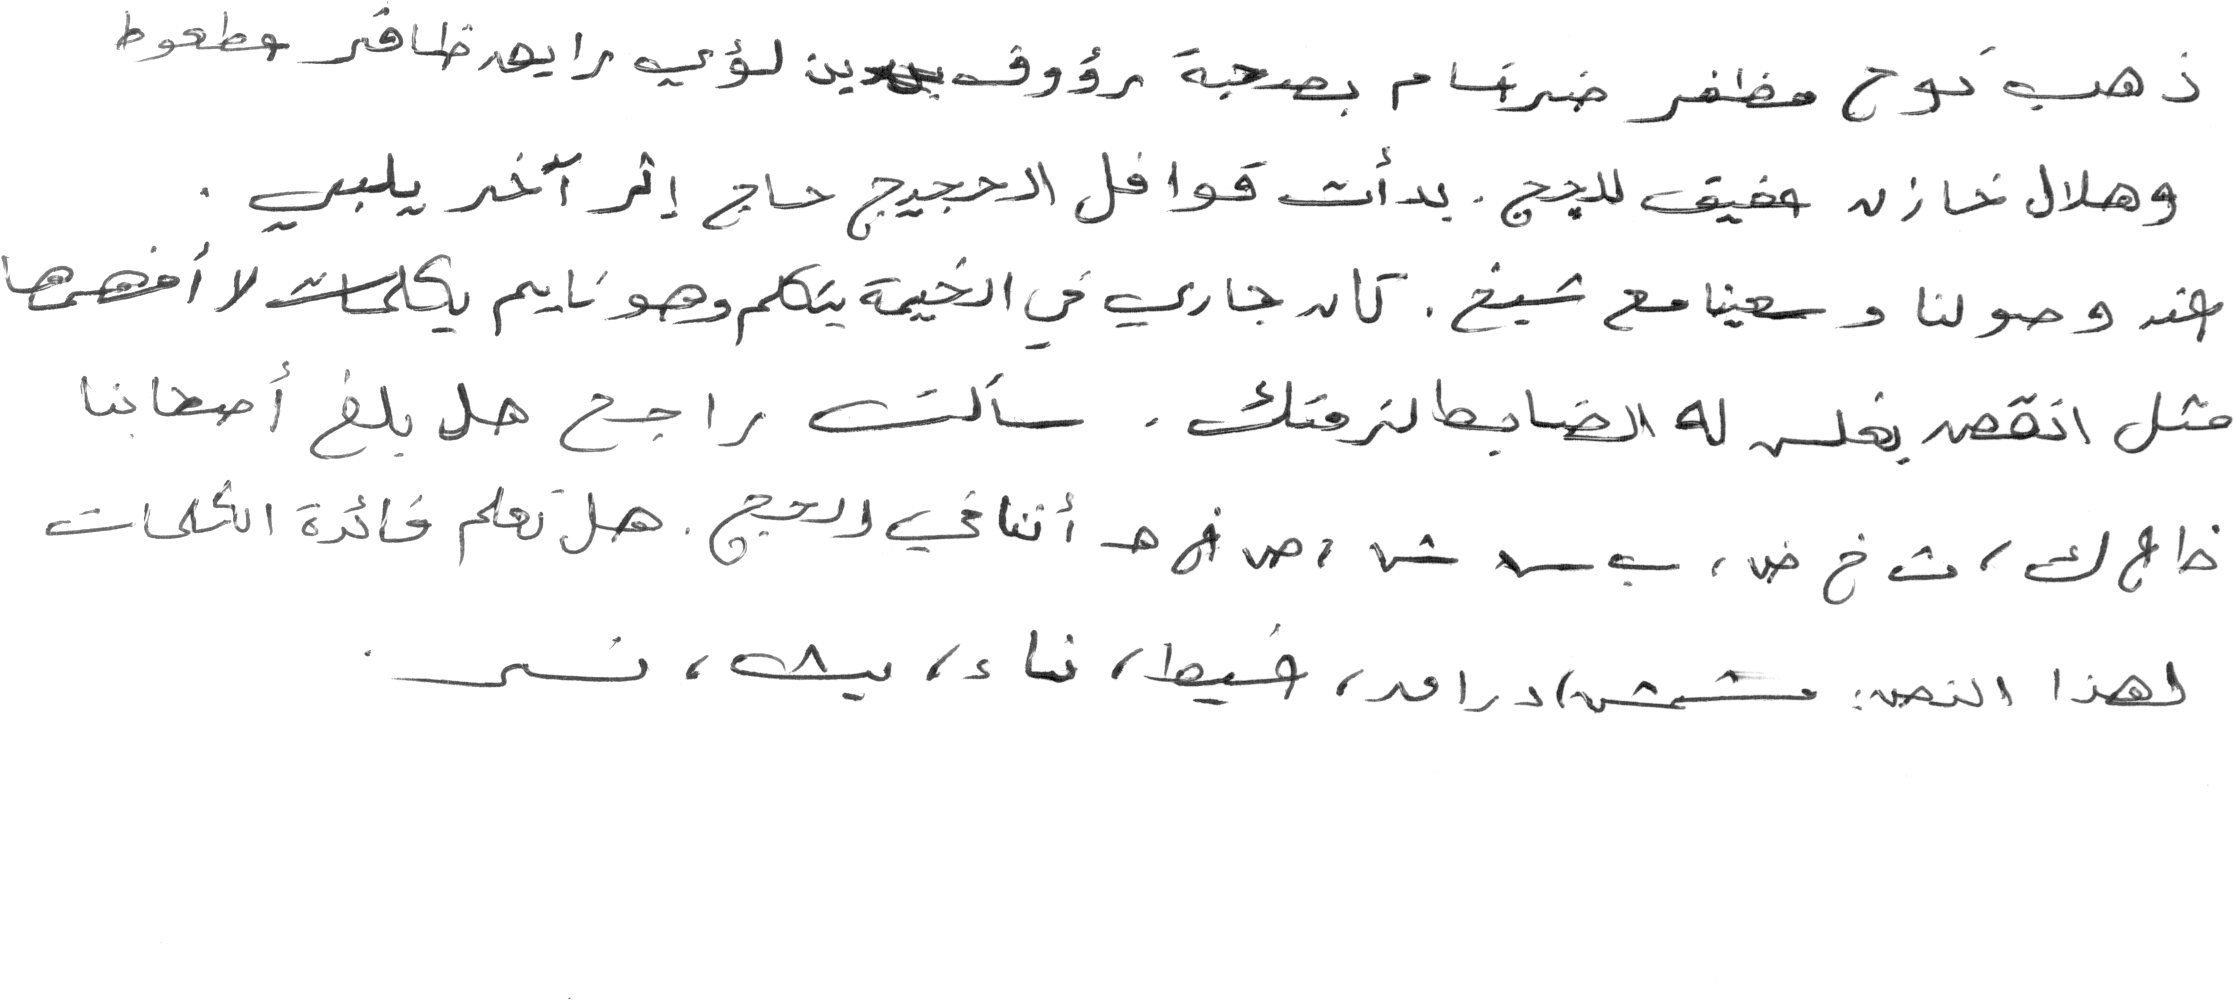 ذهب نوح مظفر ضرغام بصحبة رؤوف بن لؤي رايد ظافر عطعوط
وهلال خازن عفيق للحج. بدأت قوافل الحجيج حاج إثر آخر يلبي.
عند وصولنا وسعينا مع شيخ. كان جاري في الخيمة يتكلم وهو نايم بكلمات لا أفهمها
مثل انقض بغلس له الضابط لنرمقنك. سألت راجح هل بلغ أصحابنا
ظ ع ك، ث خ ض، ب س ش، ص غ هـ أننا في الحج. هل تعلم فائدة الكلمات
لهذا النص: غيط، ناء،